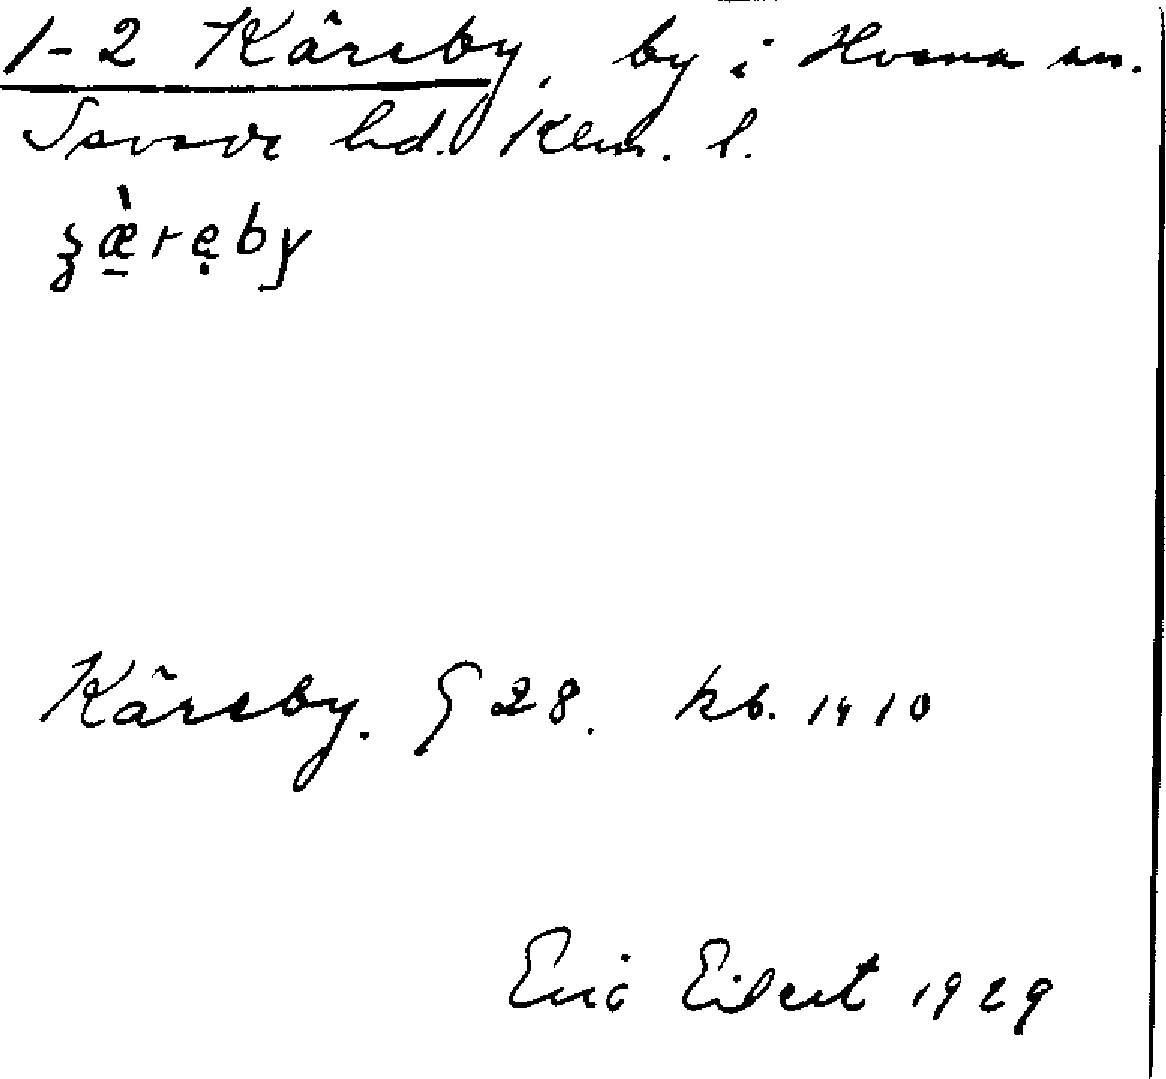 1-2 Käreby, by i Hvena sn.
Sevede hd. Klm. l.
ʓæ̱̀rẹby
Käreby. § 28. kb. 14 10
Eric Eilert 1929